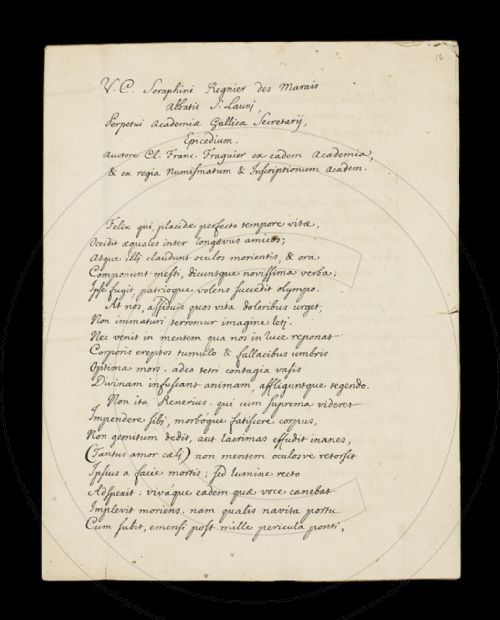 14
V. C. Seraphini Regnier des Marais
Abbatis S. Launj,
Perpetui Academiæ Gallicæ Secretarij,
Epicedium.
Auctore Cl. Franc. Fraguier ex eadem Academia,
& ex regia Numismatum & Inscriptionum Academ.
Felix qui placidæ perfecto tempore vitæ,
Occidit æquales inter longævus amicos;
Atque illi claudunt oculos morientis, & ora
Componunt mæsti, dicuntque novissima verba;
Ipse fugit, patrioque volens succedit olympo.
At nos, assiduis quos vita doloribus urget,
Non immaturi terremur imagine letj.
Nec venit in mentem quâ nos in luce reponat
Corporis ereptos tumulo & fallacibus umbris
Optima mors. adeo tetri contagia vasis
Divinam infuscant animam, affliguntque tegendo.
Non ita Renerius. qui cum suprema videret
Impendere sibj, morboque fatiscere corpus,
Non gemitum dedit, aut lacrimas effudit inanes,
(Tantus amor cælj) non mentem oculosve retorsit
Ipsius a facie mortis; sed lumine recto
Adspexit: vivâque eadem quæ voce canebat
Implevit moriens. nam qualis navita portu
Cum subit, emensi post mille pericula ponti,